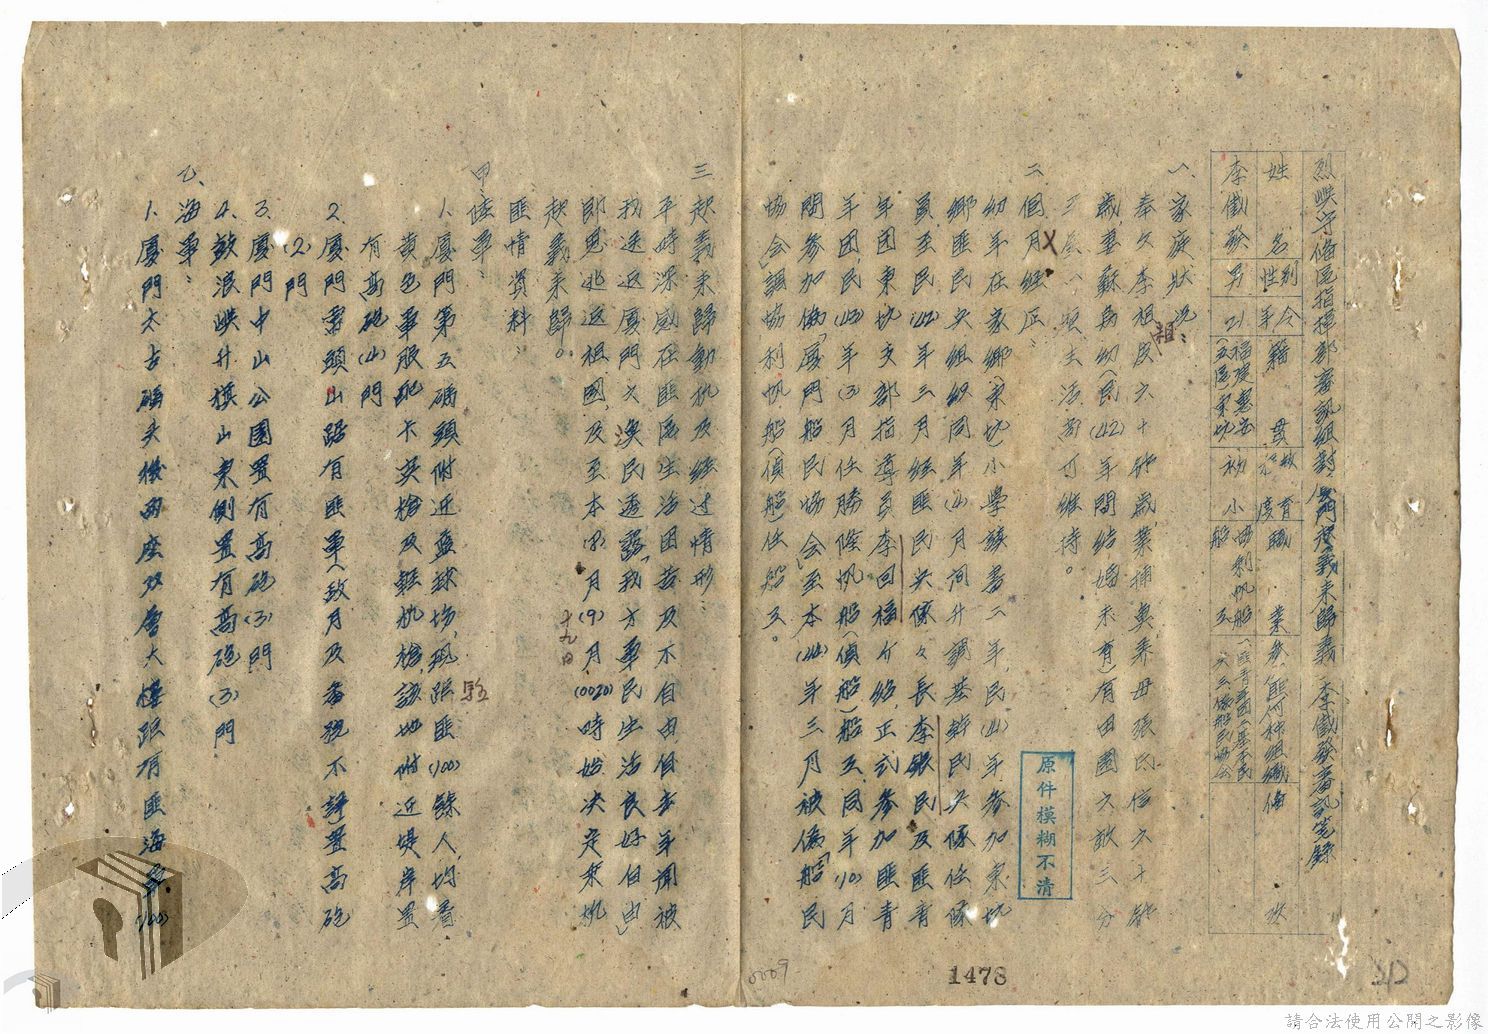 烈嶼守備區指揮部審訊組對厦門起義來歸義士李儀發審訊笔錄
姓名 性別 年令 籍貫 教育程度 職業 參加匪何种組織 備攷
李儀發 男 21 福建惠安（五區）東坑 初小 協利帆船船工
一、家庭狀況：
奉父李祖度六十餘歲，業捕魚，養母張氏 六十餘
歲，妻蘇為幼（民(42)年間結婚未育）有田園六畝三分
生活尚可維持。
二 個月經歷：
幼年在家鄉（東坑）小學讀書二年，民(41)年參加東坑
鄉匪民兵組織同年(4)月 升調基幹民兵隊任隊
員，至民(42)年三月經匪民兵隊隊長李銀民及匪青
年团東坑支部指導員李回福介紹，正式參加匪青
年团，民(43)年(3)月任勝隆帆船（偵船）船工，同年(10)月
間參加偽「厦門船民協会」至本(44)年三月被偽「船民
協会」調協利帆船（偵船）任船工。
三 起義來歸動机及經过情形：
平時深感在匪區生活困苦及不自由但去年聞被
我送返厦門大 漁民透露，「我方軍民生活良好自由」
即思逃返祖國，及至本(8)月(9)月(0020)時始決定乘帆
十九日
起義來歸。
匪情資料：
甲 陸軍：
1. 厦門第五碼頭附近藍球場，現駐匪(100)餘人，均着
黄色軍服配卡宾槍及輕机槍，該地附近堤岸置
有高砲(山)門
2. 厦門 頭山路有匪軍（數月及番號不詳）置高砲
(2)門
3. 厦門中山公園置有高砲(3)門
4. 鼓浪嶼升旗山東側置有高砲(3)門
乙、海軍：
1. 厦門太古碼头後面 座双層大樓駐有匪海軍(100)
原件模糊不清
0009
1478
212
請合法使用公開之影像